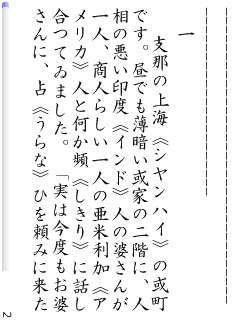 一
支那の上海《シヤンハイ》の或町
です。昼でも薄暗い或家の二階に、人
相の悪い印度《インド》人の婆さんが
一人、商人らしい一人の亜米利加《ア
メリカ》人と何か頻《しきり》に話し
合つてゐました。「実は今度もお婆
さんに、占《うらな》ひを頼みに来た
2